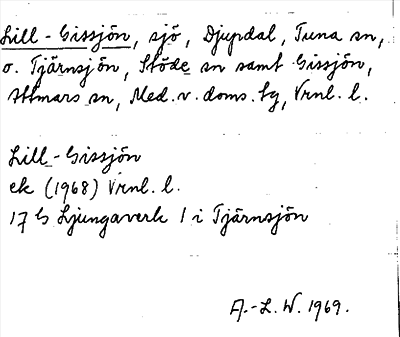 Lill-Gissjön, sjö, Djupdal, Tuna sn,
o. Tjärnsjön, Stöde sn samt Gissjön,
Attmars sn, Med. v. doms. tg, Vrnl. l.
Lill-Gissjön
ek (1968) Vrnl. l.
17 G Ljungaverk 1 i Tjärnsjön
A.-L. W. 1969.